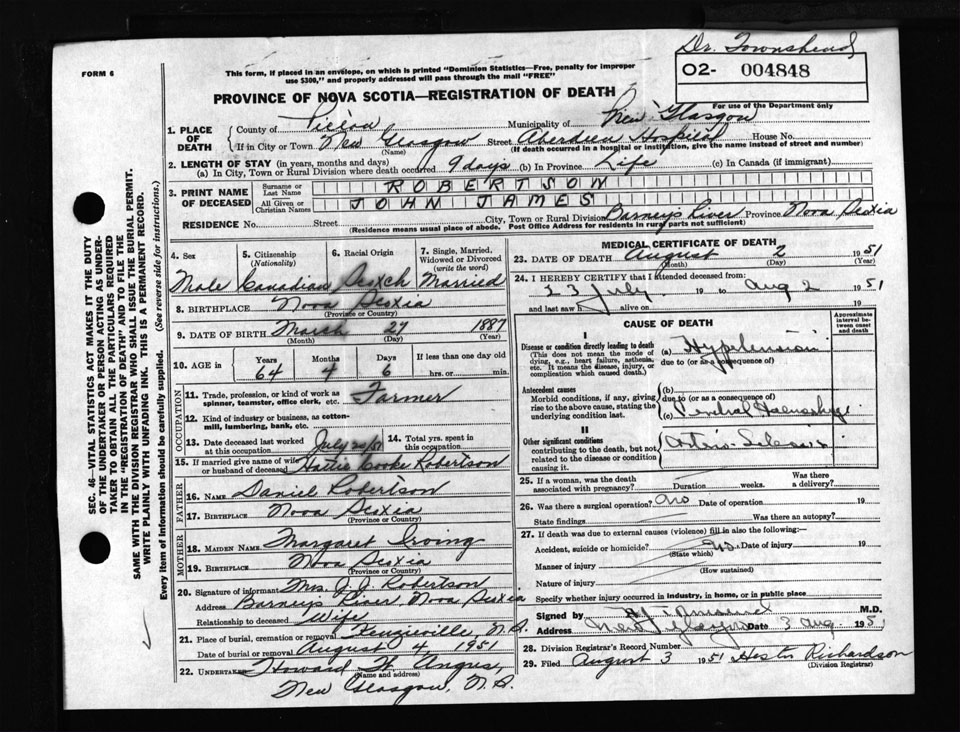 Dr. Townshend
FORM 6
This form, if placed in an envelope, on which is printed "Dominion Statistics—Free, penalty for improper
use $300," and properly addressed will pass through the mail "FREE"
O2- 004848
PROVINCE OF NOVA SCOTIA—REGISTRATION OF DEATH
For use of the Department only
1. PLACE OF DEATH
County of Pictou Municipality of New Glasgow
If in City or Town New Glasgow Street Aberdeen Hospital House No.
(Name) (If death occurred in a hospital or institution, give the name instead of street and number)
2. LENGTH OF STAY (in years, months and days)
(a) In City, Town or Rural Division where death occurred 9 days (b) In Province Life (c) In Canada (if immigrant)
3. PRINT NAME OF DECEASED
Surname or Last Name ROBERTSON
All Given or Christian Names JOHN JAMES
RESIDENCE No. Street City, Town or Rural Division Barneys River Province Nova Scotia
(Residence means usual place of abode. Post Office Address for residents in rural parts not sufficient)
4. Sex
Male
5. Citizenship (Nationality)
Canadian
6. Racial Origin
Scotch
7. Single, Married, Widowed or Divorced (write the word)
Married
8. BIRTHPLACE Nova Scotia
(Province or Country)
9. DATE OF BIRTH March 27 1887
(Month) (Day) (Year)
10. AGE in Years Months Days If less than one day old
64 4 6 hrs. or min.
OCCUPATION
11. Trade, profession, or kind of work as spinner, teamster, office clerk, etc. Farmer
12. Kind of industry or business, as cotton-mill, lumbering, bank, etc.
13. Date deceased last worked at this occupation July 20/51
14. Total yrs. spent in this occupation
15. If married give name of wife or husband of deceased Hattie Cooke Robertson
FATHER
16. NAME Daniel Robertson
17. BIRTHPLACE Nova Scotia
(Province or Country)
MOTHER
18. MAIDEN NAME Margaret Irving
19. BIRTHPLACE Nova Scotia
(Province or Country)
20. Signature of informant Mrs. J. J. Robertson
Address Barneys River, Nova Scotia
Relationship to deceased Wife
21. Place of burial, cremation or removal Kenzieville, N.S.
Date of burial or removal August 4, 1951
22. UNDERTAKER Howard H. Angus,
(Name and address)
New Glasgow, N.S.
MEDICAL CERTIFICATE OF DEATH
23. DATE OF DEATH August 2 1951
(Month) (Day) (Year)
24. I HEREBY CERTIFY that I attended deceased from:
23 July 19 to Aug 2 1951
and last saw h alive on 19
CAUSE OF DEATH
Approximate interval between onset and death
I
Disease or condition directly leading to death
(This does not mean the mode of dying, e.g., heart failure, asthenia, etc. It means the disease, injury, or complication which caused death.)
(a) Hypertension
due to (or as a consequence of)
Antecedent causes
Morbid conditions, if any, giving rise to the above cause, stating the underlying condition last.
(b)
due to (or as a consequence of)
(c)
II
Other significant conditions contributing to the death, but not related to the disease or condition causing it.
25. If a woman, was the death associated with pregnancy? Duration weeks. Was there a delivery?
26. Was there a surgical operation? no Date of operation 19
State findings Was there an autopsy?
27. If death was due to external causes (violence) fill in also the following:—
Accident, suicide or homicide? Date of injury 19
(State which)
Manner of injury
(How sustained)
Nature of injury
Specify whether injury occurred in industry, in home, or in public place
Signed by M.D.
Address New Glasgow Date 3 Aug. 1951
28. Division Registrar's Record Number
29. Filed August 3 1951 Hester Richardson
(Division Registrar)
SEC. 46—VITAL STATISTICS ACT MAKES IT THE DUTY
OF THE UNDERTAKER OR PERSON ACTING AS UNDER-
TAKER TO OBTAIN ALL THE PARTICULARS REQUIRED
IN THE "REGISTRATION OF DEATH" AND TO FILE THE
SAME WITH THE DIVISION REGISTRAR WHO SHALL ISSUE THE BURIAL PERMIT.
WRITE PLAINLY WITH UNFADING INK. THIS IS A PERMANENT RECORD.
Every item of information should be carefully supplied. (See reverse side for instructions.)